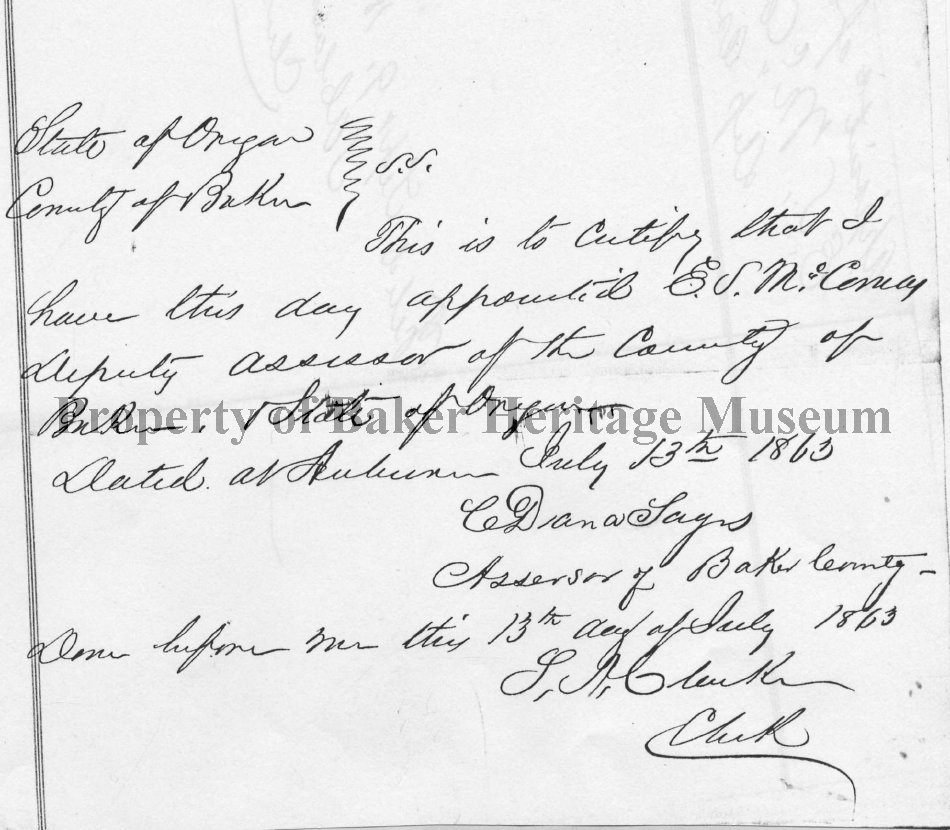 State of Oregon
County of Baker } S.S.
This is to certify that I
have this day appointed E. S. McComas
Deputy assessor of the County of
Baker, State of Oregon
Property of Baker Heritage Museum
Dated at Auburn July 13th 1863
C Dana Sayrs
Assessor of Baker County
Done before me this 13th day of July 1863
S. A. Clarke
Clerk